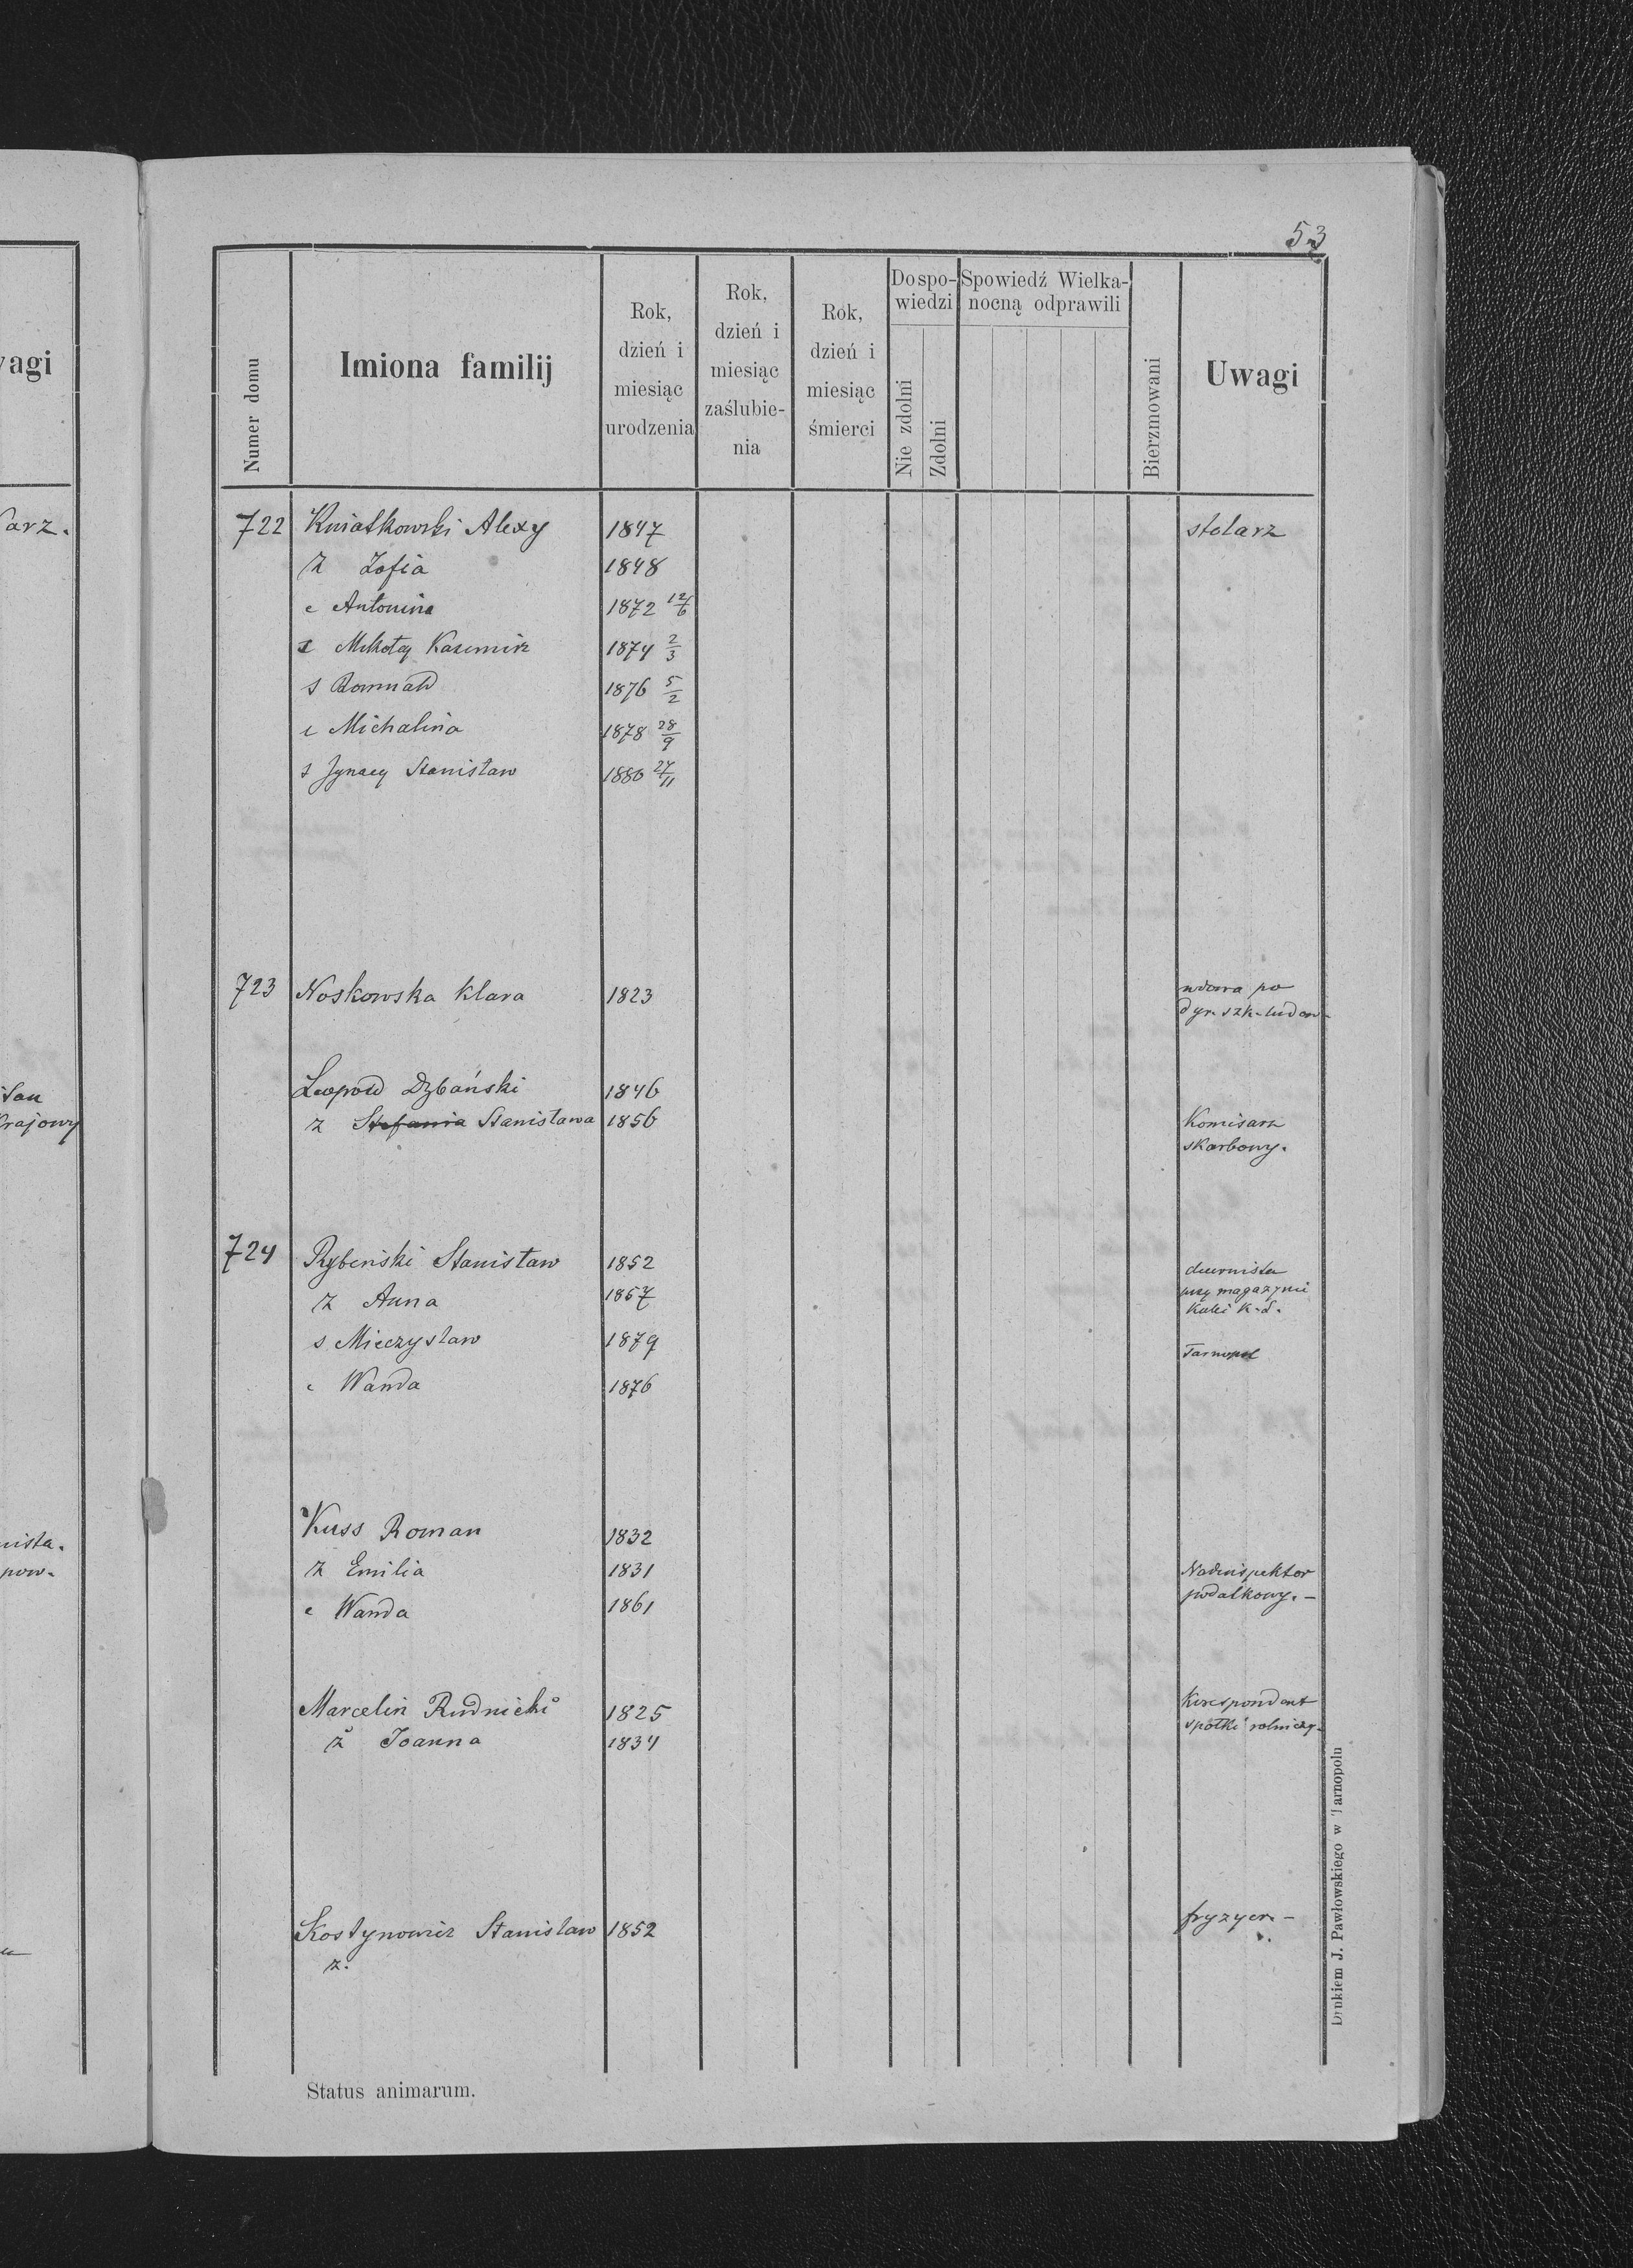 53
Numer domu
Imiona familij
Rok, dzień i miesiąc urodzenia
Rok, dzień i miesiąc zaślubie-nia
Rok, dzień i miesiąc śmierci
Do spo-wiedzi
Nie zdolni
Zdolni
Spowiedź Wielka-nocną odprawili
Bierzmowani
Uwagi
722 Kwiatkowski Alexy 1847 stolarz
ż Zofia 1848
c Antonina 1872 12/6
s Mikołaj Kazimirz 1874 2/3
s Romuald 1876 5/2
c Michalina 1878 28/9
s Ignacy Stanisław 1880 27/11
723 Noskowska Klara 1823 wdowa po
dyr. szk. ludow-
Leopold Dzbański 1846
ż Stefania Stanisława 1856 Komisarz
skarbowy.
724 Rybeński Stanisław 1852 diurnista
ż Anna 1857 przy magazynie
kolei K. L.
s Mieczysław 1879 Tarnopol
c Wanda 1876
Kuss Roman 1832
ż Emilia 1831 Nadinspektor
c Wanda 1861 podatkowy. -
Marcelin Rudnicki 1825 Korespondent
spółki rolniczy-
ż Joanna 1834
Kostynowicz Stanisław 1852 fryzyer. -
ż.
Status animarum.
Drukiem J. Pawłowskiego w Tarnopolu
vagi
arz.
krajowy
nista.
pow.